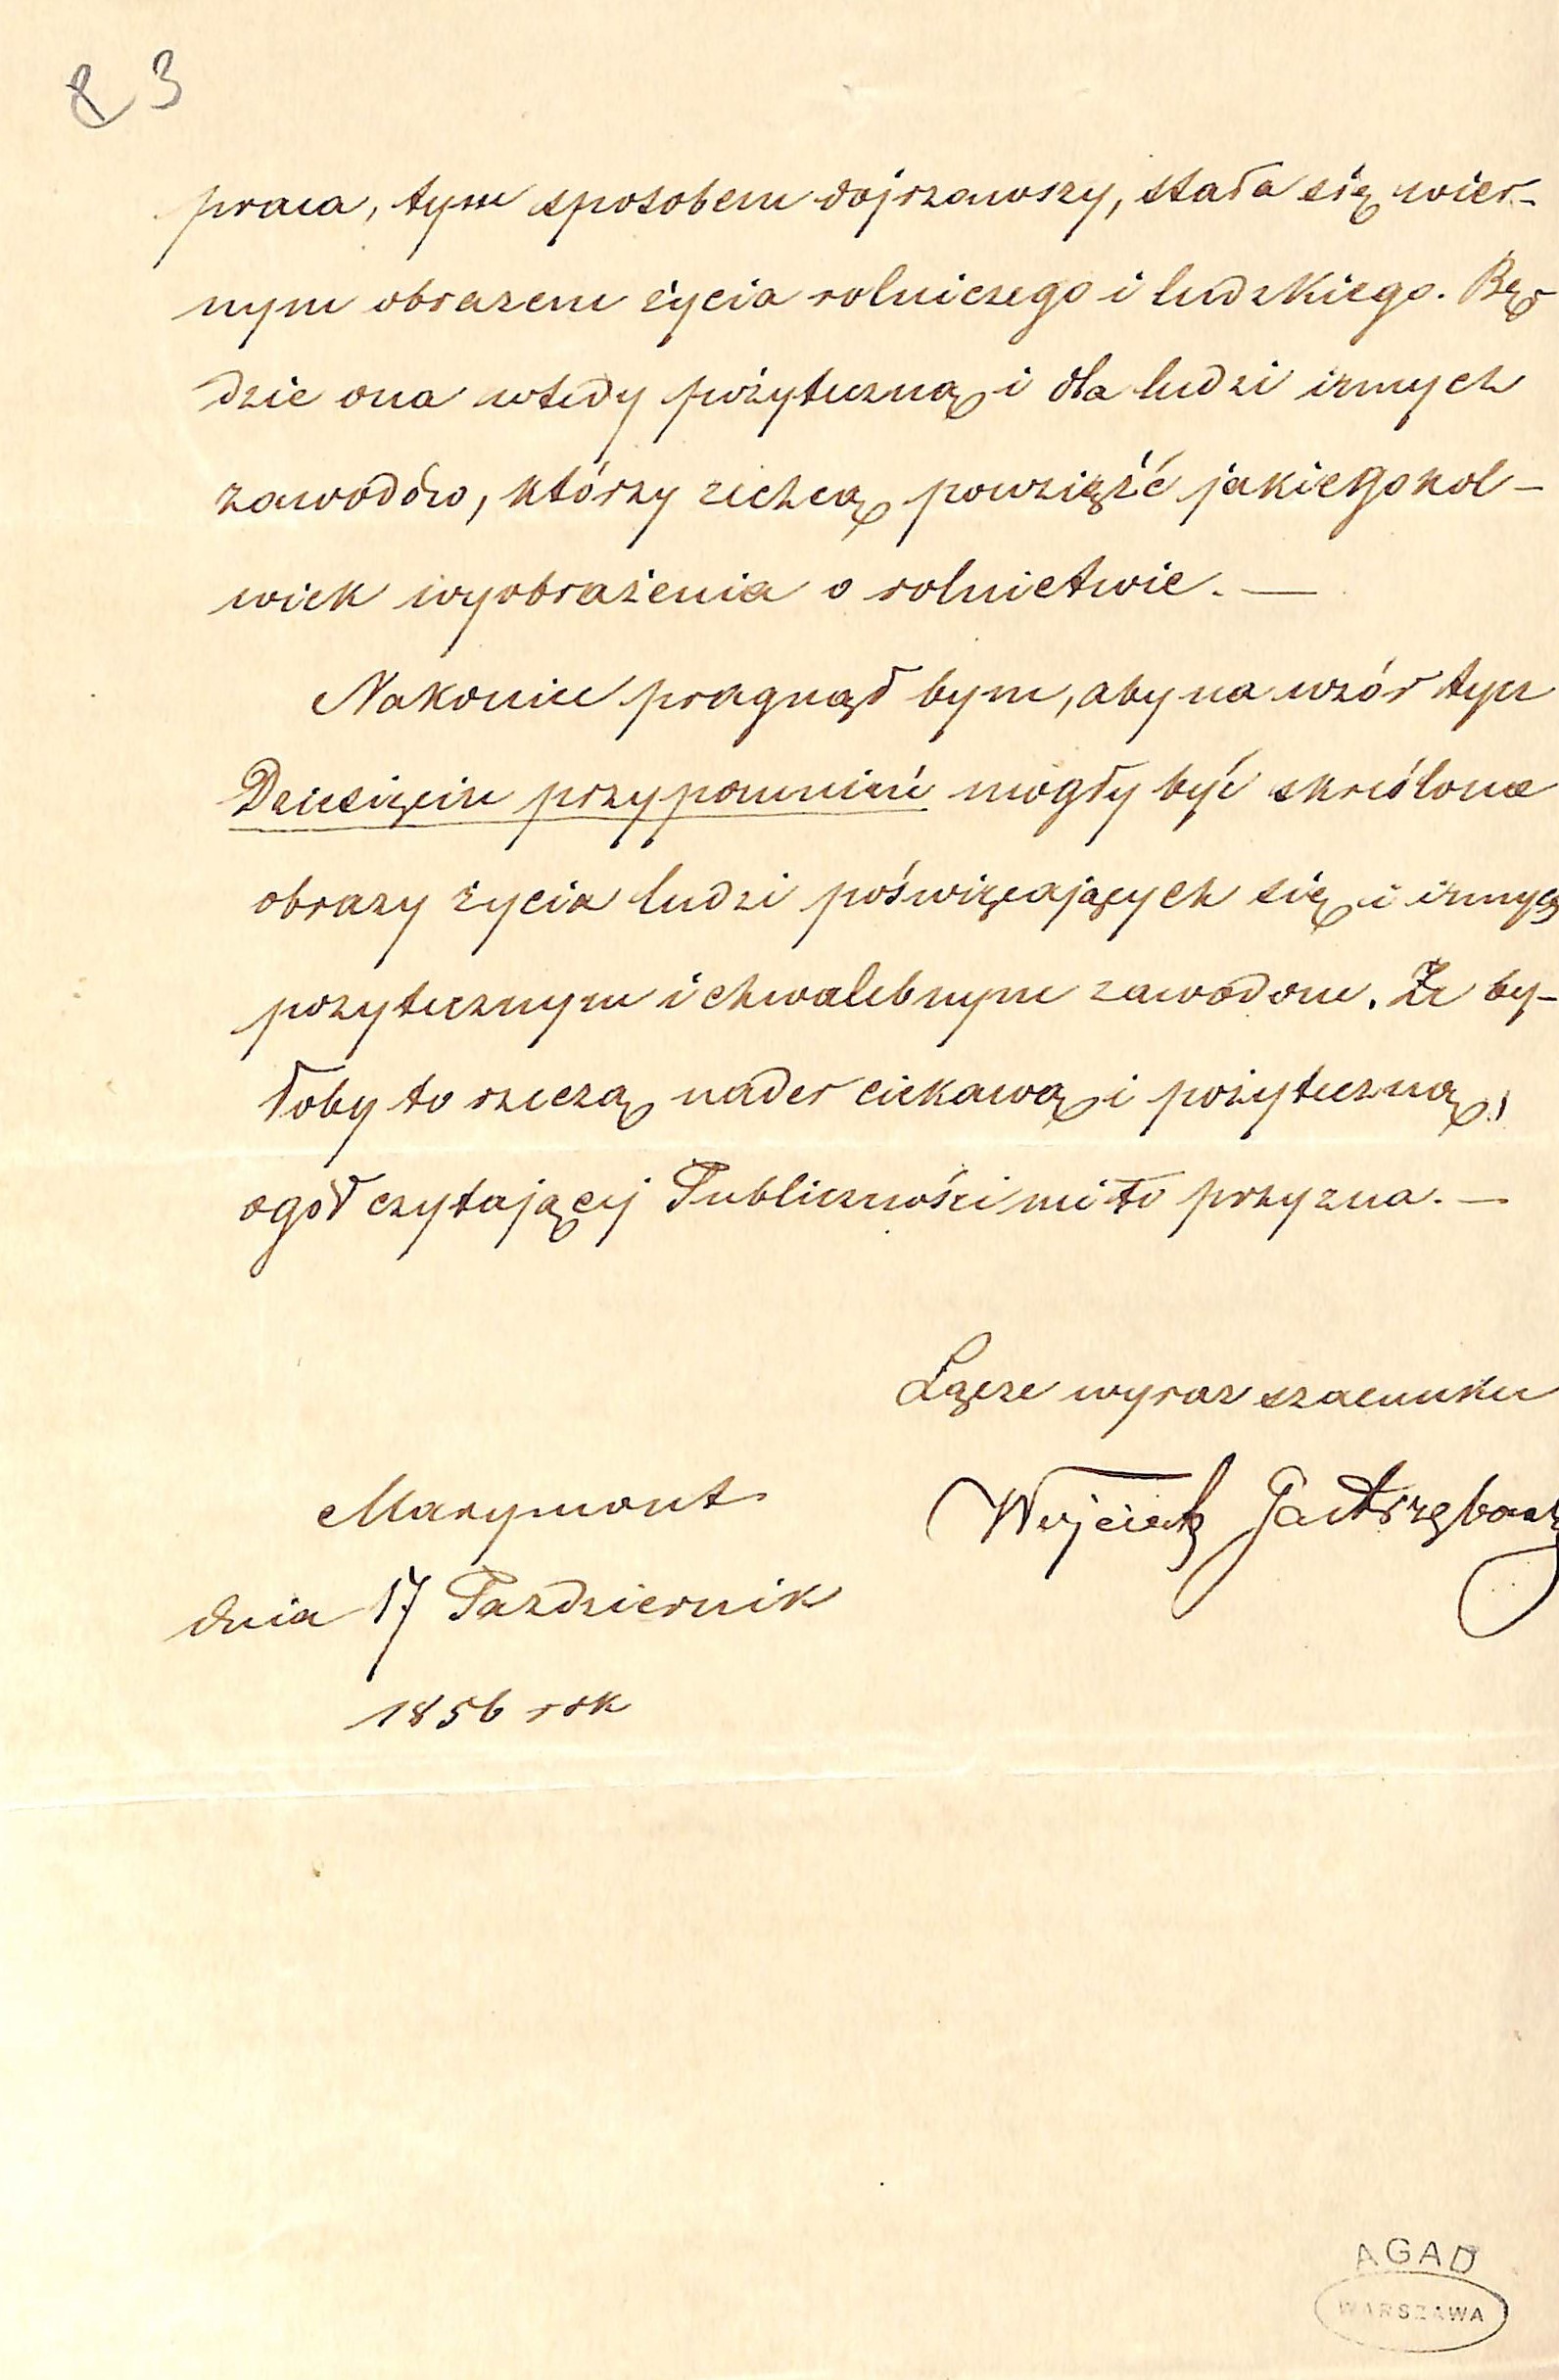 3
praca, tym sposobem dojrzawszy, stała się wier-
nym obrazem życia rolniczego i ludzkiego. Bę-
dzie ona wtedy pożyteczną i dla ludzi innych
zawodów, którzy zechcą powziąźć jakiegokol-
wiek wyobrażenia o rolnictwie. —
Nakoniec pragnął bym, aby na wzór tych
Dziesięciu przypomnień mogły być skreślone
obrazy życia ludzi poświęcających się i innych
pożytecznym i chwalebnym zawodom. Że by-
łoby to rzeczą nader ciekawą i pożyteczną,
ogół czytającej Publiczności mi to przyzna. —
Łącze wyraz szacunku
Wojciech Jastrzębowski
Marymont
dnia 17 Październik
1856 rok
AGAD
WARSZAWA